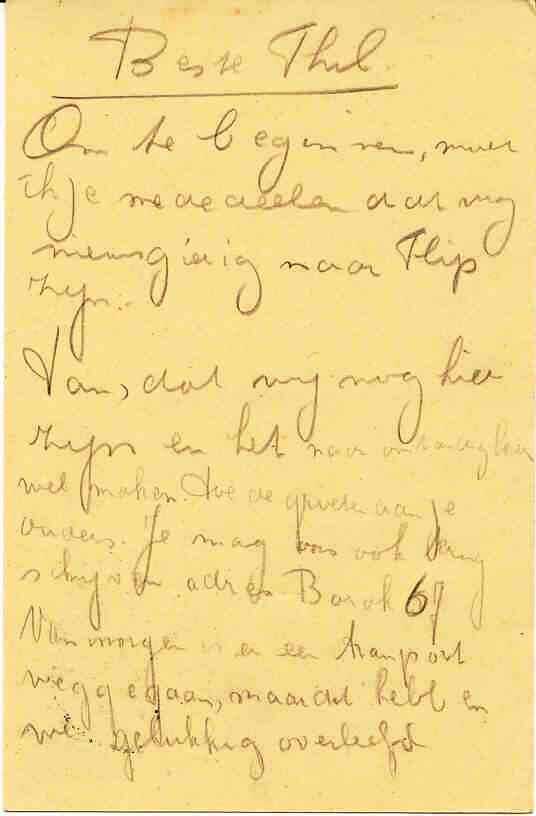 Beste Thil.
Om te beginnen, moet
ik je mededeelen dat wy
nieuwsgierig naar Flip
zyn.
Van, dat wij nog hier
zyn en het naar omstandigheden
wel maken. Doe de groeten aan je
ouders. Je mag ons ook terug
schryven adres Barak 67
Van morgen is er een transport
weggegaan, maar dat hebben
we gelukkig overleefd